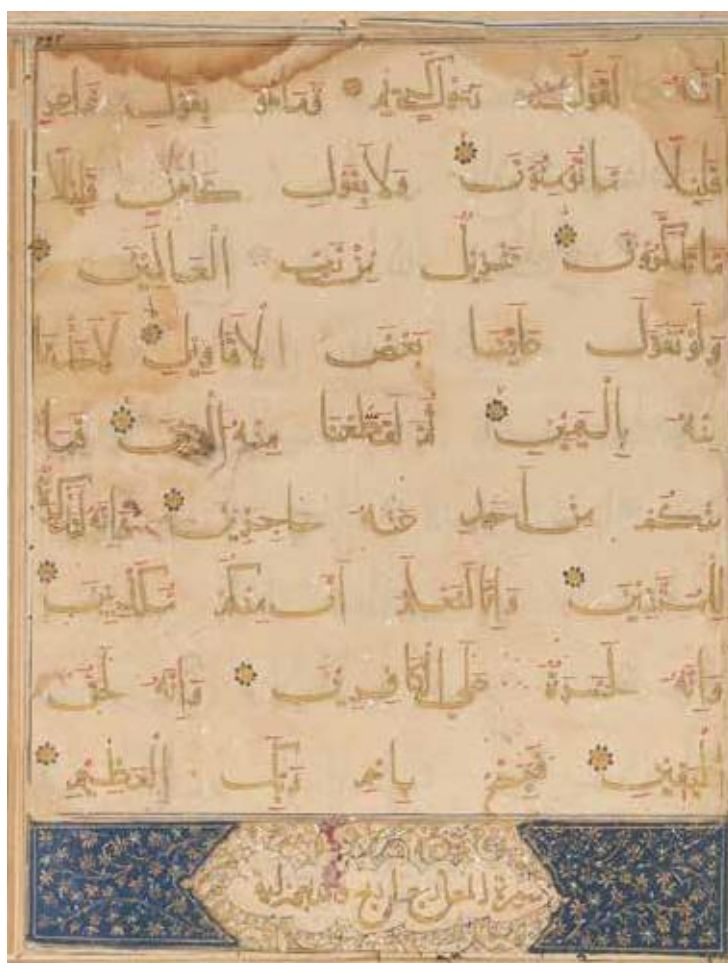 إِنَّهُ لَقَوْلُ رَسُولٍ كَرِيمٍ وَمَا هُوَ بِقَوْلِ شَاعِرٍ
قَلِيلًا مَا تُؤْمِنُونَ وَلَا بِقَوْلِ كَاهِنٍ قَلِيلًا
مَا تَذَكَّرُونَ تَنْزِيلٌ مِنْ رَبِّ الْعَالَمِينَ
وَلَوْ تَقَوَّلَ عَلَيْنَا بَعْضَ الْأَقَاوِيلِ لَأَخَذْنَا
مِنْهُ بِالْيَمِينِ ثُمَّ لَقَطَعْنَا مِنْهُ الْوَتِينَ فَمَا
مِنْكُمْ مِنْ أَحَدٍ عَنْهُ حَاجِزِينَ وَإِنَّهُ لَتَذْكِرَةٌ
لِلْمُتَّقِينَ وَإِنَّا لَنَعْلَمُ أَنَّ مِنْكُمْ مُكَذِّبِينَ
وَإِنَّهُ لَحَسْرَةٌ عَلَى الْكَافِرِينَ وَإِنَّهُ لَحَقُّ
الْيَقِينِ فَسَبِّحْ بِاسْمِ رَبِّكَ الْعَظِيمِ
سورة المعارج اربع اية